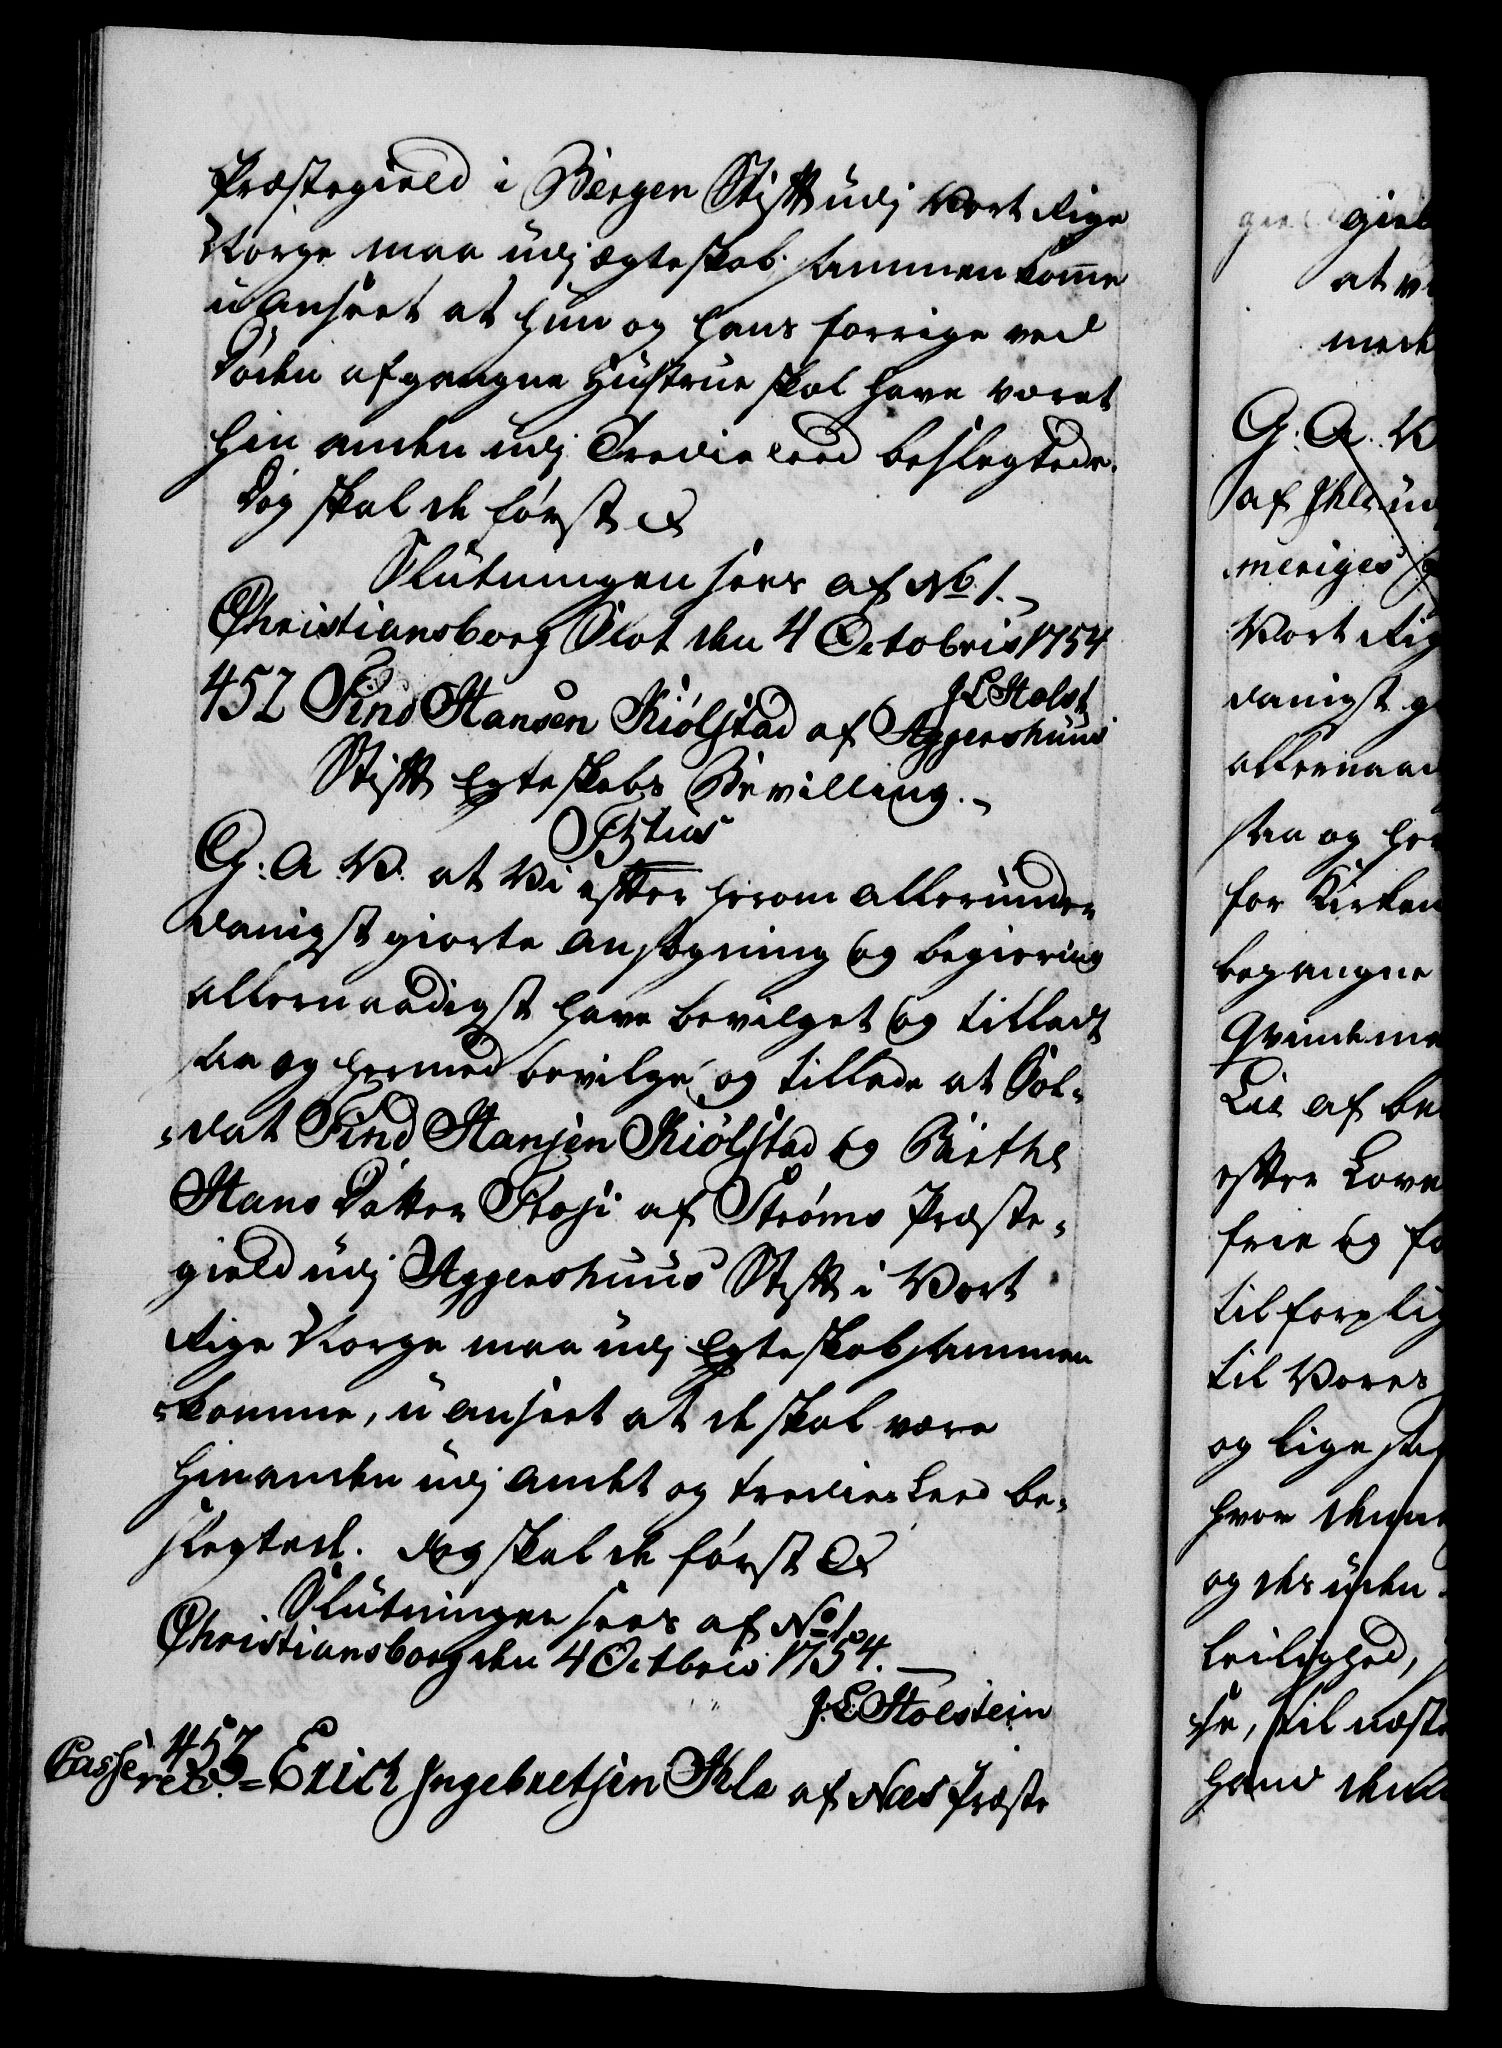 Præstegield i Bergen Stift udj Vort Rige
Norge maa udj ægteskab sammen komme
uanseet at hun og hans forrige ved
Døden afgangne Hustrue skal have været
hin anden udj Tredie Leed beslegtede.
Dog skal de først &
Slutningen sees af No 1.
Christiansborg Slot den 4 Octobris 1754
J L Holst
452 Find Hansen Kiölstad af Aggershuus
Stift Egteskabs Bevilling.
G. A. V. at Vi efter herom allerunder
danigst giorte ansøgning og begiering
allernaadigst have bevilget og tilladt
saa og hermed bevilge og tillade at Sol-
dat Find Hansen Kiölstad og Birthe
Hans Datter af Strøms Præste-
gield udj Aggershuus Stift i Vort
Rige Norge maa udj Egteskab sammen
komme, uanseet at de skal være
hinanden udj andet og tredie Leed be-
slegtede. dog skal de først &
Slutningen sees af No 1.
Christiansborg den 4 Octbris 1754.
J. L. Holstein
Casseret 453 Erich Ingebretsen Ihle af Næs Præste
gield
at v
med
G. A. V
af Ihle ud
meriges
Vort Rig
danigst g
allernaad
saa og he
for Kirken
begangne
Qvindeme
Lie af be
efter Love
frie og f
til forplig
til Vores
og lige
hvor denne
og des uden
leilighed,
se, til næste
haand